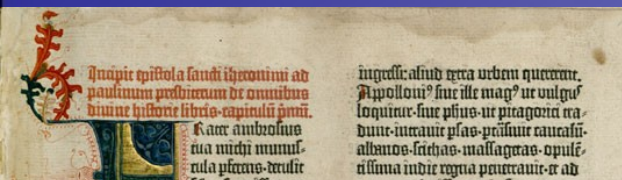 Incipit epistola sancti iheronimi ad
paulinum presbiterum de omnibus
divine historie libris · capitulū pͥmū.
Frater ambrosius
tua michi munus-
cula p̄ferens · detulit
ingressi: aliud extra urbem quererent.
Appolloni⁹ sive ille mag⁹ ut vulgus
loquitur · sive ph̄us · ut pitagorici tra-
dunt · intravit p̄sas · pt̄ransivit caucasū·
albanos · scithas · massagetas · opulē-
tissima indie regna penetravit · et ad